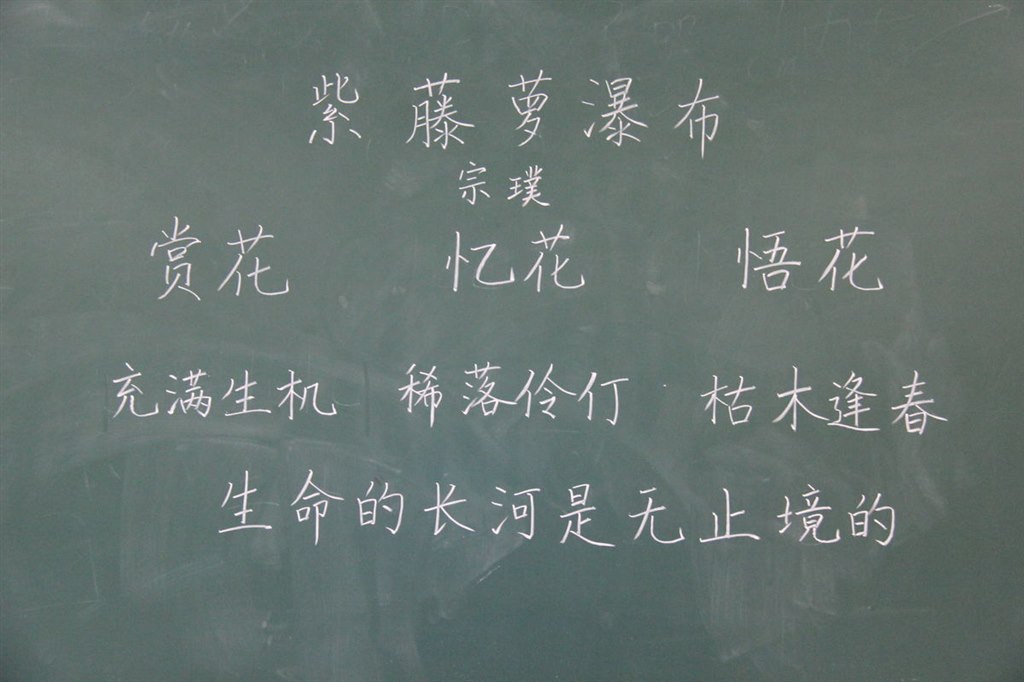 紫藤萝瀑布
宗璞
赏花 忆花 悟花
充满生机 稀落伶仃 枯木逢春
生命的长河是无止境的